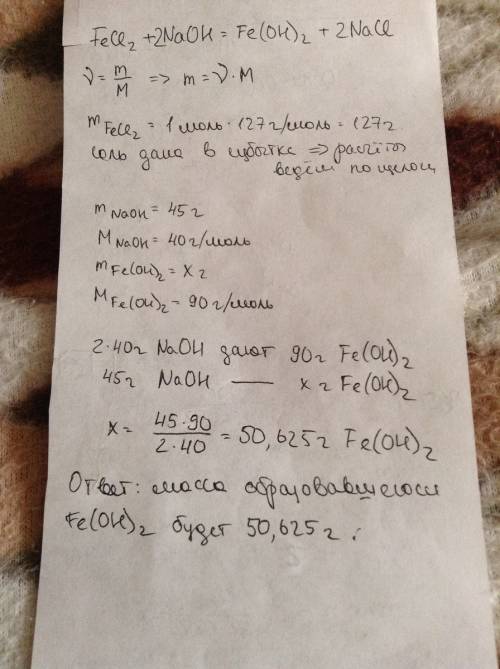 FeCl₂ + 2NaOH = Fe(OH)₂ + 2NaCl
ν = m/M => m = ν · M
m FeCl₂ = 1 моль · 127 г/моль = 127 г.
соль дана в избытке => расчёты
ведём по щелочи
m NaOH = 45 г
M NaOH = 40 г/моль
m Fe(OH)₂ = x г
M Fe(OH)₂ = 90 г/моль
2·40г NaOH дают 90г Fe(OH)₂
45г NaOH — x г Fe(OH)₂
x = 45·90 / 2·40 = 50,625 г Fe(OH)₂
Ответ: масса образовавшегося
Fe(OH)₂ будет 50,625 г.